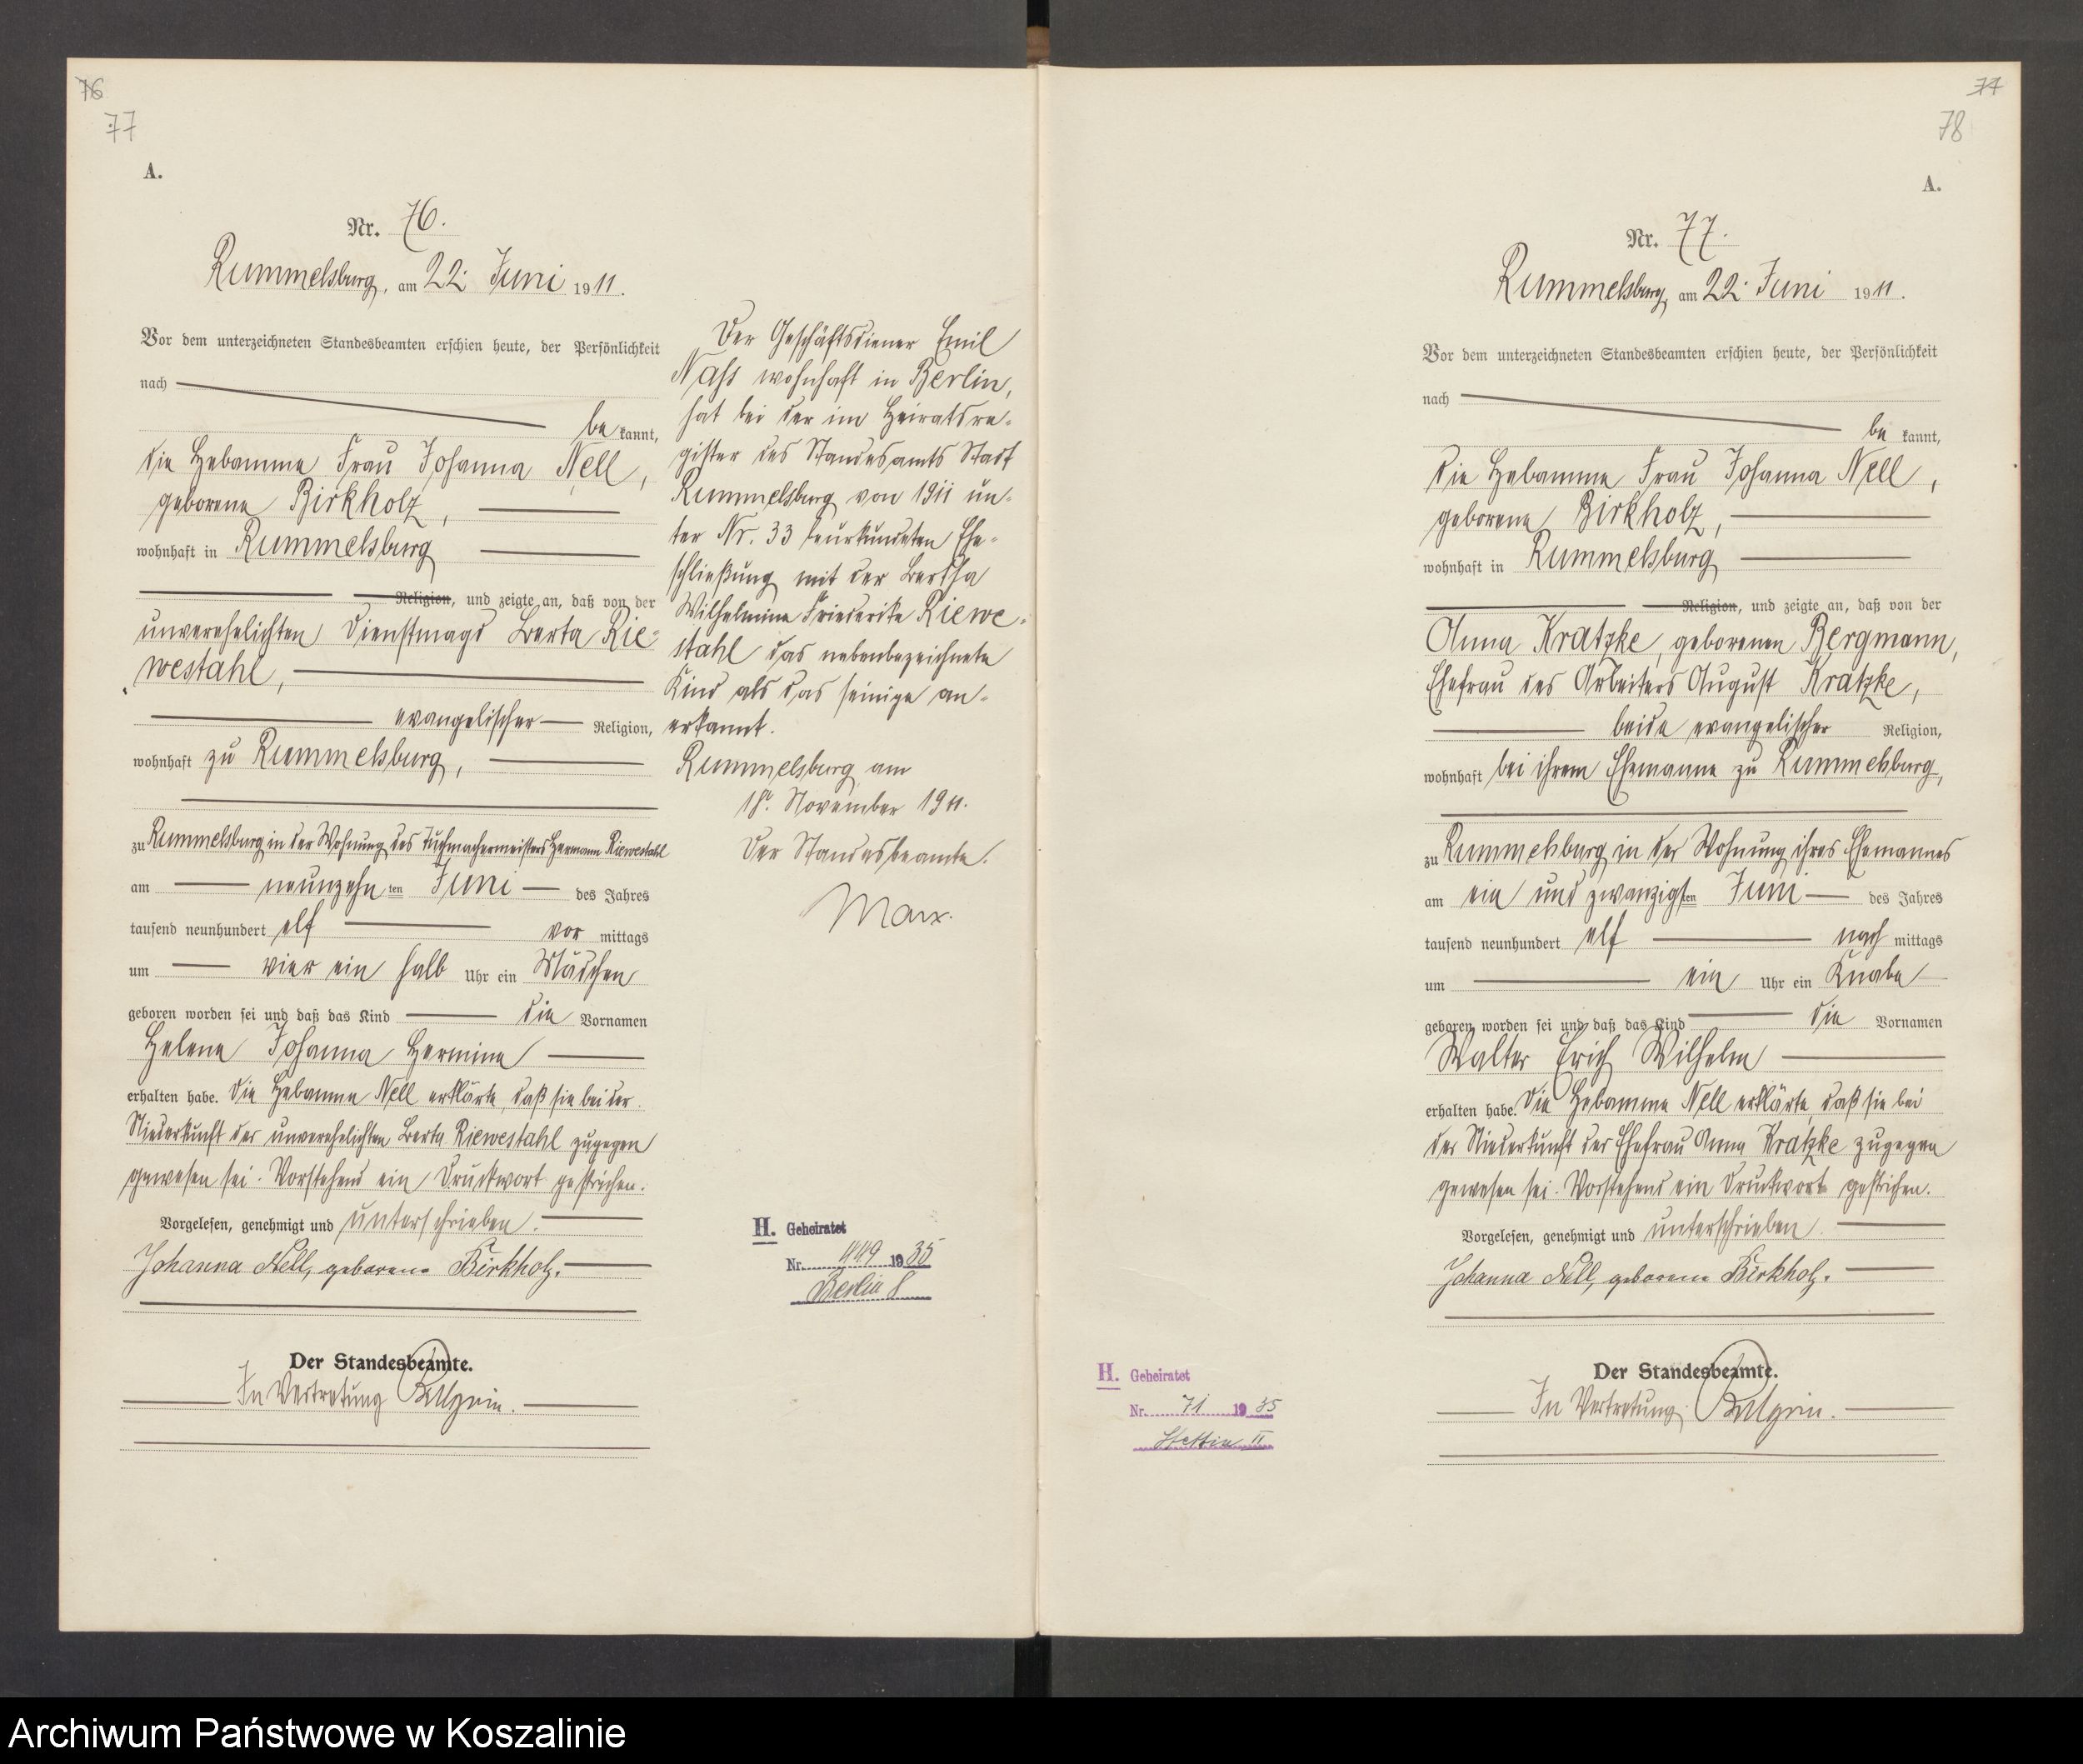 76
77
A.
Nr. 76.
Rummelsburg, am 22. Juni 1911.
Vor dem unterzeichneten Standesbeamten erschien heute, der Persönlichkeit
nach
be kannt,
die Hebamme Frau Johanna Nell,
geborene Birkholz,
wohnhaft in Rummelsburg
Religion, und zeigte an, daß von der
unverehelichten Dienstmagd Berta Rie-
westahl,
evangelischer Religion,
wohnhaft zu Rummelsburg,
zu Rummelsburg in der Wohnung des Tuchmachermeisters Hermann Riewestahl
am neunzehn ten Juni des Jahres
tausend neunhundert elf vor mittags
um vier ein halb Uhr ein Mädchen
geboren worden sei und daß das Kind die Vornamen
Helene Johanna Hermine
erhalten habe. Die Hebamme Nell erklärte, daß sie bei der
Niederkunft der unverehelichten Berta Riewestahl zugegen
gewesen sei. Vorstehend ein Druckwort gestrichen.
Vorgelesen, genehmigt und unterschrieben.
Johanna Nell, geborene Birkholz.
Der Standesbeamte.
In Vertretung
Der Geschäftsdiener Emil
Nass wohnhaft in Berlin,
hat bei der im Heiratsre-
gister des Standesamts Stadt
Rummelsburg von 1911 un-
ter Nr. 33 beurkundeten Ehe-
schließung mit der Bertha
Wilhelmine Friederike Riewe-
stahl das nebenbezeichnete
Kind als das seinige an-
erkannt.
Rummelsburg am
18. November 1911.
Der Standesbeamte.
Marx.
H. Geheiratet
Nr. 1935
Berlin
77
78
A.
Nr. 77.
Rummelsburg, am 22. Juni 1911.
Vor dem unterzeichneten Standesbeamten erschien heute, der Persönlichkeit
nach
be kannt,
die Hebamme Frau Johanna Nell,
geborene Birkholz,
wohnhaft in Rummelsburg
Religion, und zeigte an, daß von der
Anna Kratzke, geborenen Bergmann,
Ehefrau des Arbeiters August Kratzke,
beide evangelischer Religion,
wohnhaft bei ihrem Ehemanne zu Rummelsburg,
zu Rummelsburg in der Wohnung ihres Ehemannes
am ein und zwanzigsten Juni des Jahres
tausend neunhundert elf nach mittags
um ein Uhr ein Knabe
geboren worden sei und daß das Kind die Vornamen
Walter Erich Wilhelm
erhalten habe. Die Hebamme Nell erklärte, daß sie bei
der Niederkunft der Ehefrau Anna Kratzke zugegen
gewesen sei. Vorstehend ein Druckwort gestrichen.
Vorgelesen, genehmigt und unterschrieben.
Johanna Nell, geborene Birkholz.
Der Standesbeamte.
In Vertretung
H. Geheiratet
Nr. 71 1935
Stettin II
Archiwum Państwowe w Koszalinie